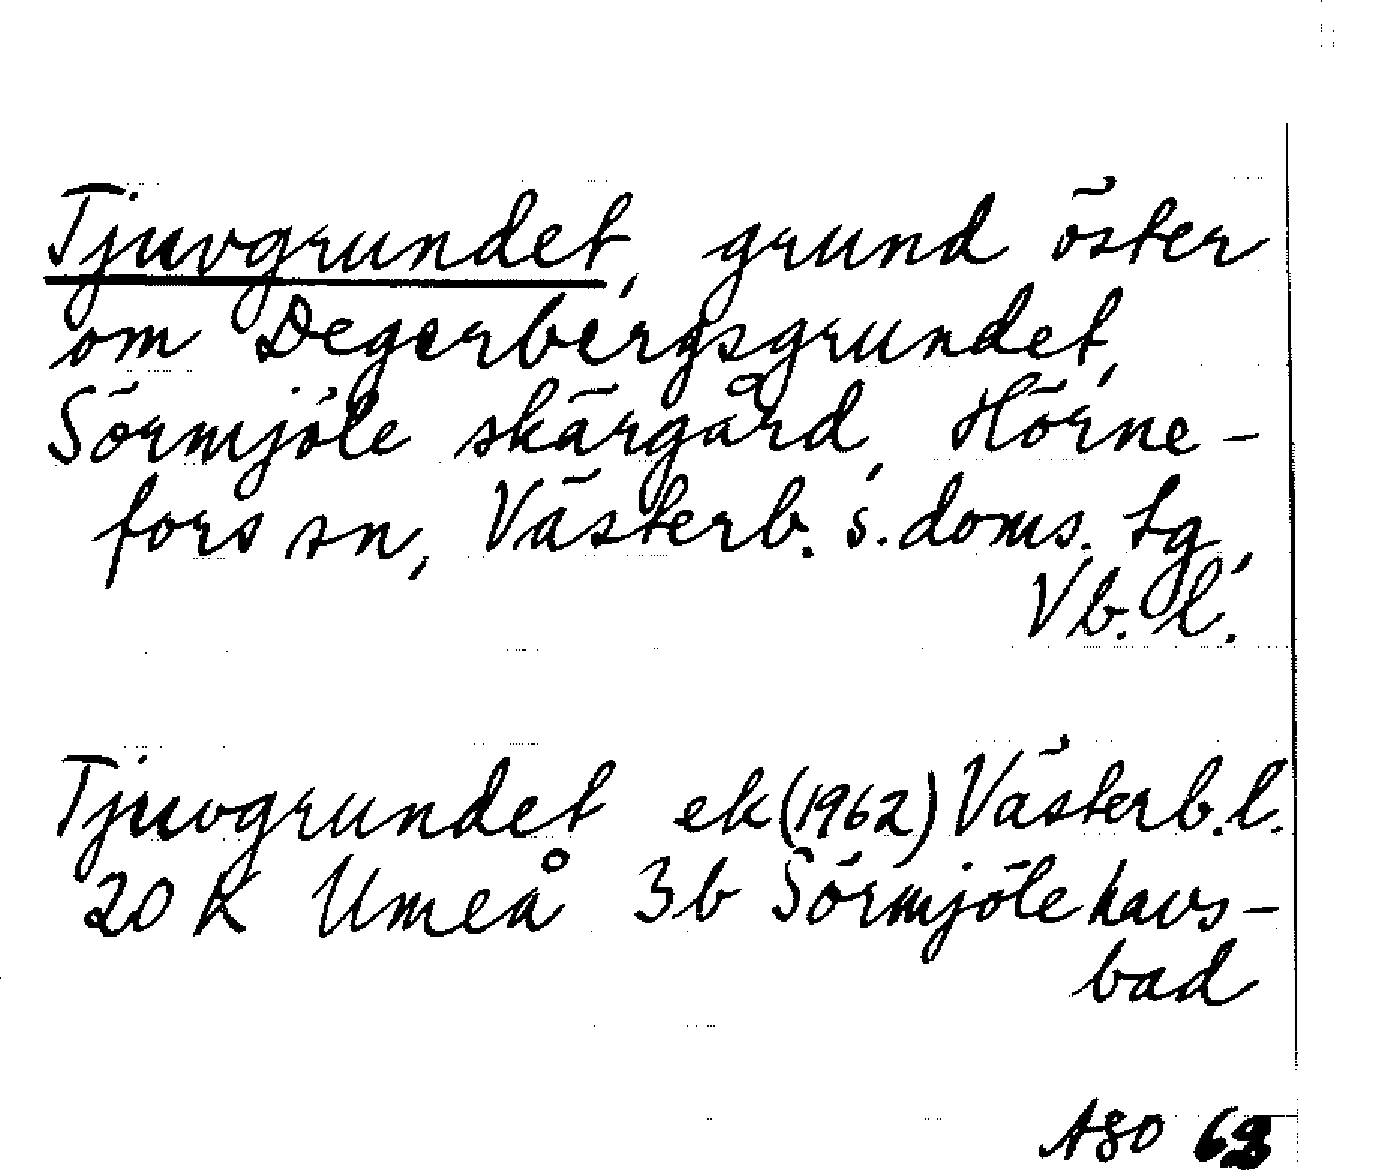 Tjuvgrundet, grund öster
om Degerbergsgrundet,
Sörmjöle skärgård, Hörne-
fors sn, Västerb. s. doms. tg,
Vb. l.
Tjuvgrundet ek (1962) Västerb. l.
20 K Umeå 3b Sörmjöle havs-
bad
ASO